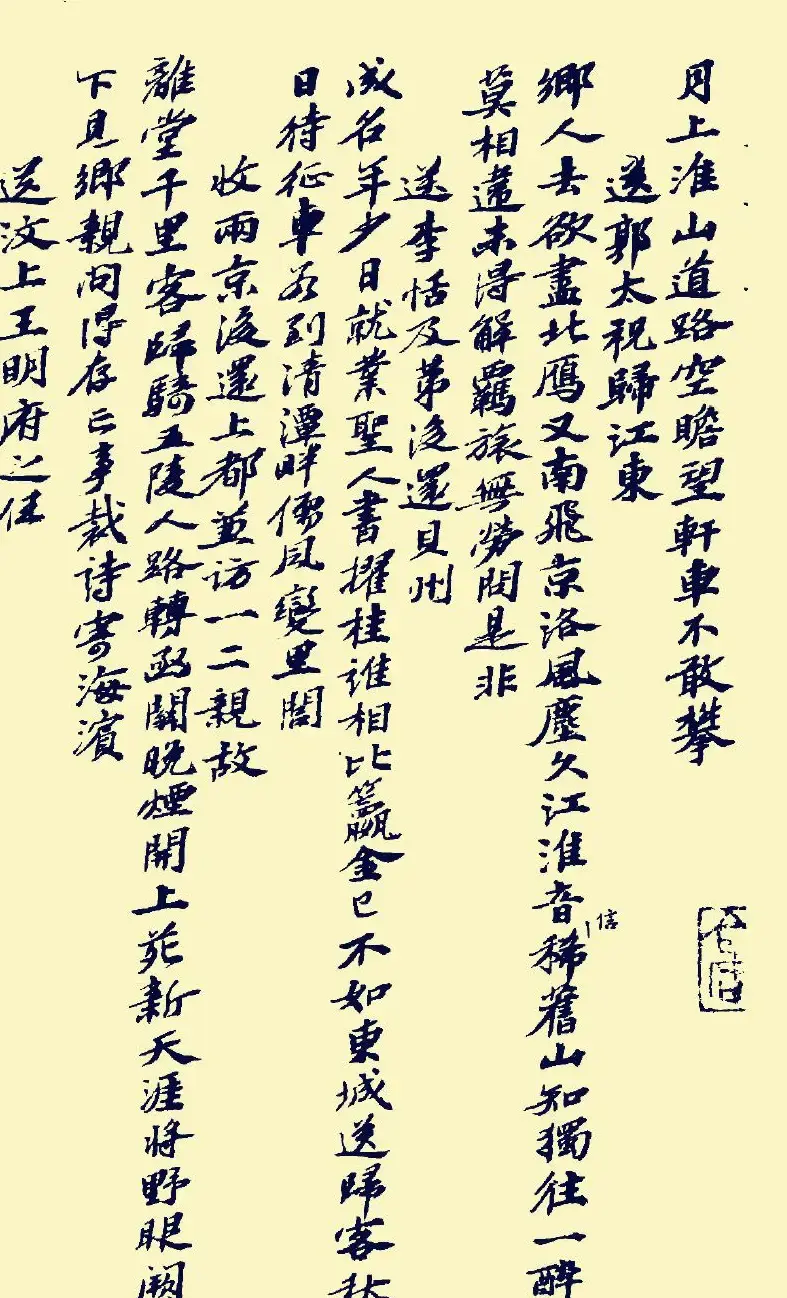 月上淮山道路空瞻望軒車不敢攀
送郭太祝歸江東
鄉人去欲盡北鴈又南飛京洛風塵久江淮音信稀舊山知獨往一醉
莫相違未得解羈旅無勞問是非
送李恬及第後還貝州
成名年少日就業聖人書擢桂誰相比籯金已不如東城送歸客秋
日待征車若到清潭畔儒風變里閭
收兩京後還上都兼訪一二親故
離堂千里客歸騎五陵人路轉函關晚煙開上苑新天涯將野服闕
下見鄉親問得存亡事裁詩寄海濱
送汶上王明府之任